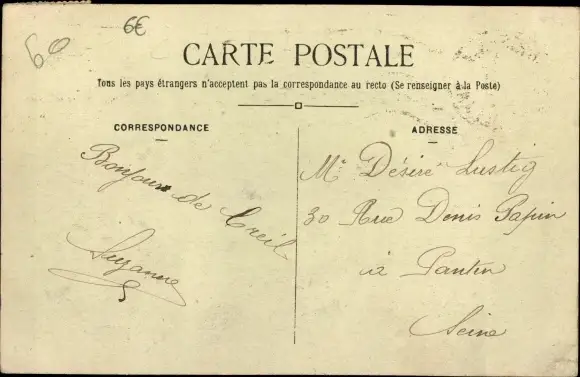 6€
CARTE POSTALE
Tous les pays étrangers n'acceptent pas la correspondance au recto (Se renseigner à la Poste)
CORRESPONDANCE
Bonjour de Creil
Suzanne
ADRESSE
Mr Désiré Lustig
30 Rue Denis Papin
à Pantin
Seine